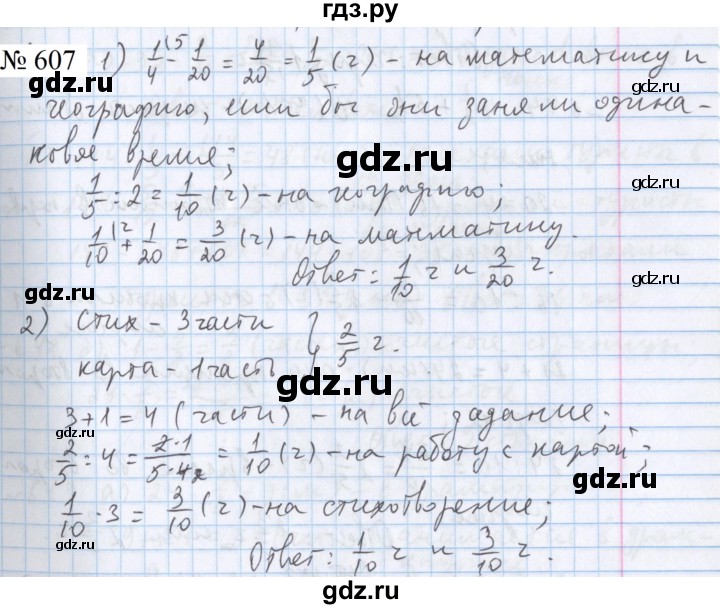 гдз.ру
№ 607 1) 1/4 (5 - 1/20 = 4/20 = 1/5 (ч) - на математику и
географию, если бы они заняли одина-
ковое время;
gdz.ru
1/5 : 2 = 1/10 (ч) - на географию;
gdz.ru
1/10 (2 + 1/20 = 3/20 (ч) - на математику.
gdz.ru
Ответ: 1/10 ч и 3/20 ч.
gdz.ru
2) Стих - 3 части } 2/5 ч.
карта - 1 часть
gdz.ru
3+1 = 4 (части) - на всё задание;
gdz.ru
2/5 : 4 = 2·1/5·4 2 = 1/10 (ч) - на работу с картой;
gdz.ru
1/10 · 3 = 3/10 (ч) - на стихотворение;
gdz.ru
Ответ: 1/10 ч и 3/10 ч.
gdz.ru